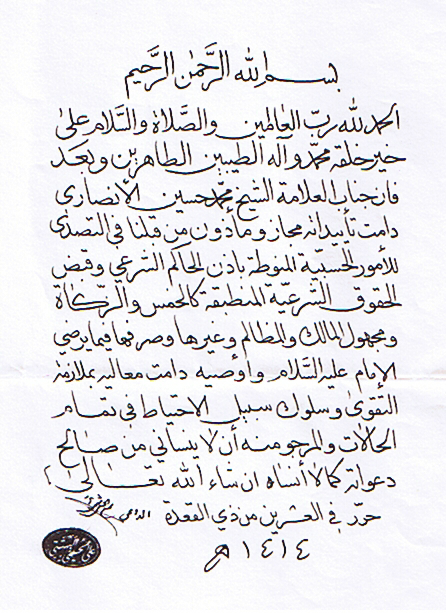 بسم الله الرَّحمٰن الرَّحيم
الحمد لله ربّ العالمين والصَّلاة والسَّلام علىٰ
خير خلقه محمّد وآله الطيبين الطاهرين وبعد
فان جناب العلامة الشيخ محمّد حسين الأنصاري
دامت تأييداته مجاز ومأذون من قبلنا في التصدي
للأمور الحسبيّة المنوطة باذن الحاكم الشرعي وقبض
الحقوق الشرعيّة المنطبقة كالخمس والزّكاة
ومجهول المالك والمظالم وغيرها وصرفها فيما يرضي
الإمام عليه السَّلام وأوصيه دامت معاليه بملازمة
التقوىٰ وسلوك سبيل الاحتياط في تمام
الحالات والمرجو منه أن لا ينساني من صالح
دعواته كما لا أنساه ان شاء الله تعالىٰ
حرّر في العشرين من ذي القعدة الداعي
١٤١٤ هـ